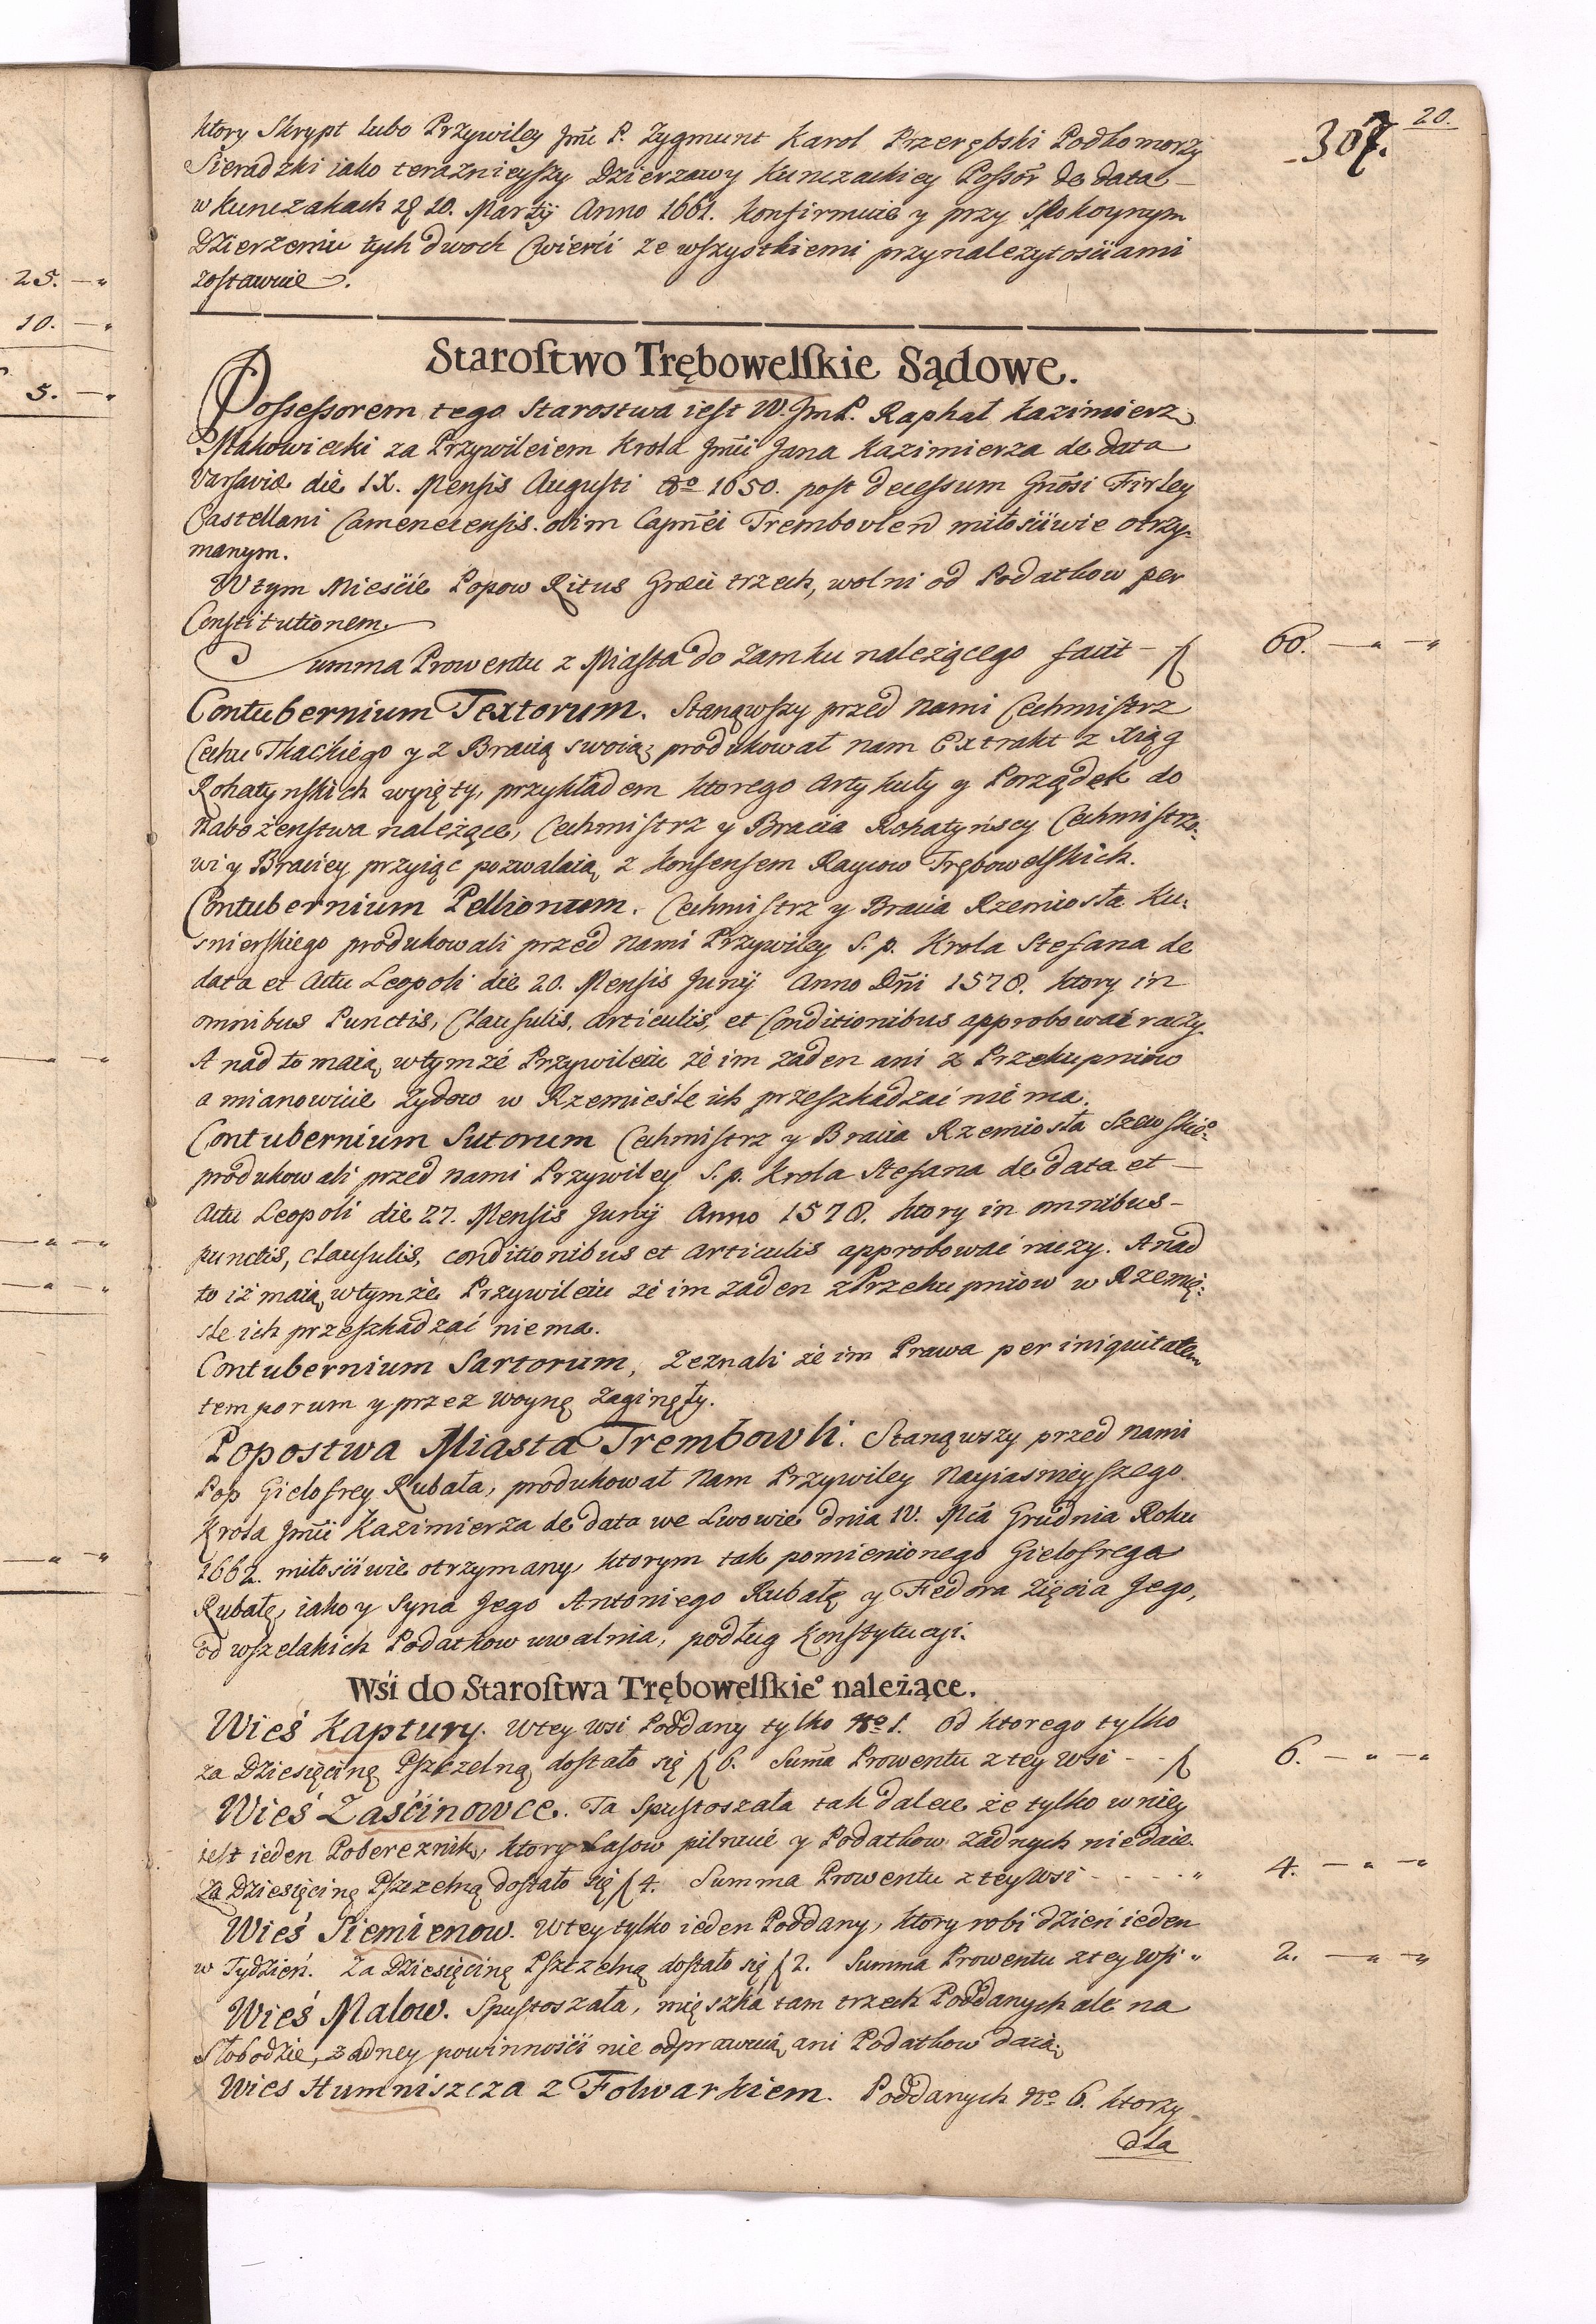 20.
307.
ktory Skrypt lubo Przywiley Jmći P. Zygmunt Karol Przerębski Podkomorzy
Sieradzki iako teraznieyszy Dzierzawy Kunczackiey Possor de data –
w Kunczakach 10. Martÿ Anno 1661. konfirmuie y przy spokoynym
Dzierzeniu tych dwoch Cwierći ze wszystkiemi przynalezytosciami
zostawuie.
Starostwo Trębowelskie Sądowe.
Possessorem tego Starostwa iest W. JmP. Raphał Kazimierz
Makowiecki za Przywileiem Krola Jmći Jana Kazimierza de data
Varsaviæ die IX. Mensis Augusti Ao 1650. post decessum Gnosi Firley
Castellani Camenecensis. olim Capnei Trembovlen miłosciwie otrzy-
manym.
W tym Miescie Popow Ritus Græci trzech, wolni od Podatkow per
Constitutionem.
Summa Prowentu z Miasta do Zamku należącego facit – ƒ 60. — „ — „
Contubernium Textorum. Stanąwszy przed nami Cechmistrz
Cechu Tkackiego y z Bracią swoią, produkował nam Extrakt z Xiąg
Rohatynskich wyięty, przykładem ktorego Artykuły y Porządek do
Nabożenstwa należące, Cechmistrz y Bracia Rohatyńscy Cechmistrzo-
wi y Braciey przyiąc pozwalaią, z konsensem Raycow Trębowelskich.
Contubernium Pellionum. Cechmistrz y Bracia Rzemiosła Ku-
snierskiego produkowali przed nami Przywiley S. p. Krola Stefana de
data et Actu Leopoli die 20. Mensis Junÿ Anno Dni 1578. ktory in
omnibus Punctis, Clausulis, Articulis, et Conditionibus approbować raczy.
A nad to maią, w tymże Przywileiu że im żaden ani z Przekupniow
a mianowicie Zydow w Rzemieśle ich przeszkadzać nie ma.
Contubernium Sutorum Cechmistrz y Bracia Rzemiosła Szewskieo
produkowali przed nami Przywiley S. p. Krola Stefana de data et –
Actu Leopoli die 27. Mensis Junÿ Anno 1578. ktory in omnibus –
punctis, clausulis, conditionibus et articulis approbować raczy. A nad
to iż maią, w tymże Przywileiu że im żaden z Przekupniow w Rzemię-
śle ich przeszkadzać nie ma.
Contubernium Sartorum, Zeznali że im Prawa per iniquitatem
temporum y przez woynę zaginęły.
Popostwa Miasta Trembowli. Stanąwszy przed nami
Pop Gielofrey Rubała, produkował nam Przywiley Nayiasnieyszego
Krola Jmći Kazimierza de data we Lwowie dnia IV. Mca Grudnia Roku
1662. miłościwie otrzymany, ktorym tak pomienionego Gielofreya
Rubałę, iako y Syna Jego Antoniego Rubałę y Fedora Zięcia Jego,
od wszelakich Podatkow uwalnia, podług Konstytucyi.
Wśi do Starostwa Trębowelskieo należące.
Wieś Kaptury. W tey wsi Poddany tylko No 1. Od ktorego tylko
za Dziesięcinę Pszczelną dostało się ƒ 6. Suma Prowentu z tey wsi - - ƒ 6. — „ — „
Wieś Zaścinowce. Ta spustoszała tak dalece że tylko w niey
iest ieden Pobereznik, ktory Lasow pilnuie y Podatkow żadnych nie daie.
Za Dziesięcinę Pszczelną dostało się ƒ 4. Summa Prowentu z tey wsi - - - - „ 4. — „ — „
Wieś Siemienow. W tey tylko ieden Poddany, ktory robi dzień ieden
w Tydzień. Za Dziesięcinę Pszczelną dostało się ƒ 2. Summa Prowentu z tey wsi „ 2. — „ — „
Wieś Malow. Spustoszała, mięszka tam trzech Poddanych ale na
Słobodzie, żadney powinności nie odprawuią, ani Podatkow daią.
Wies Humniszcza z Folwarkiem. Poddanych No 6. ktorzy
dla
25. — „
10. — „
5. — „